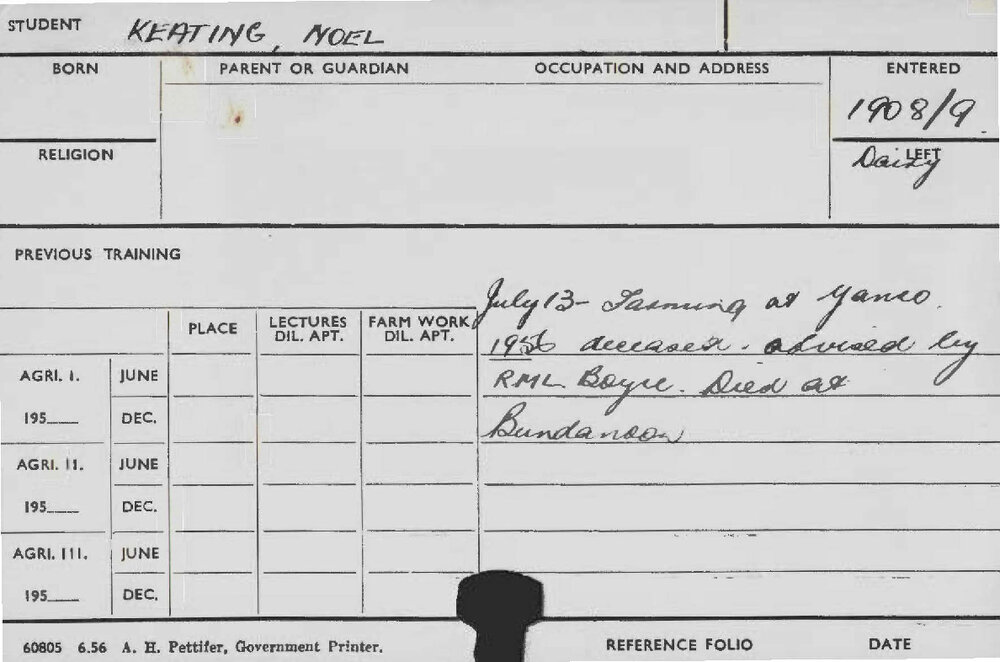 STUDENT KEATING, NOEL
BORN PARENT OR GUARDIAN OCCUPATION AND ADDRESS ENTERED
1908/9
RELIGION LEFT
Dairy
PREVIOUS TRAINING
July 13 - Farming at Yanco.
PLACE LECTURES DIL. APT. FARM WORK DIL. APT.
1956 deceased. advised by
AGRI. I. JUNE
RML Boyce. Died at
195___ DEC.
Bundanoon
AGRI. II. JUNE
195___ DEC.
AGRI. III. JUNE
195___ DEC.
60805 6.56 A. H. Pettifer, Government Printer. REFERENCE FOLIO DATE